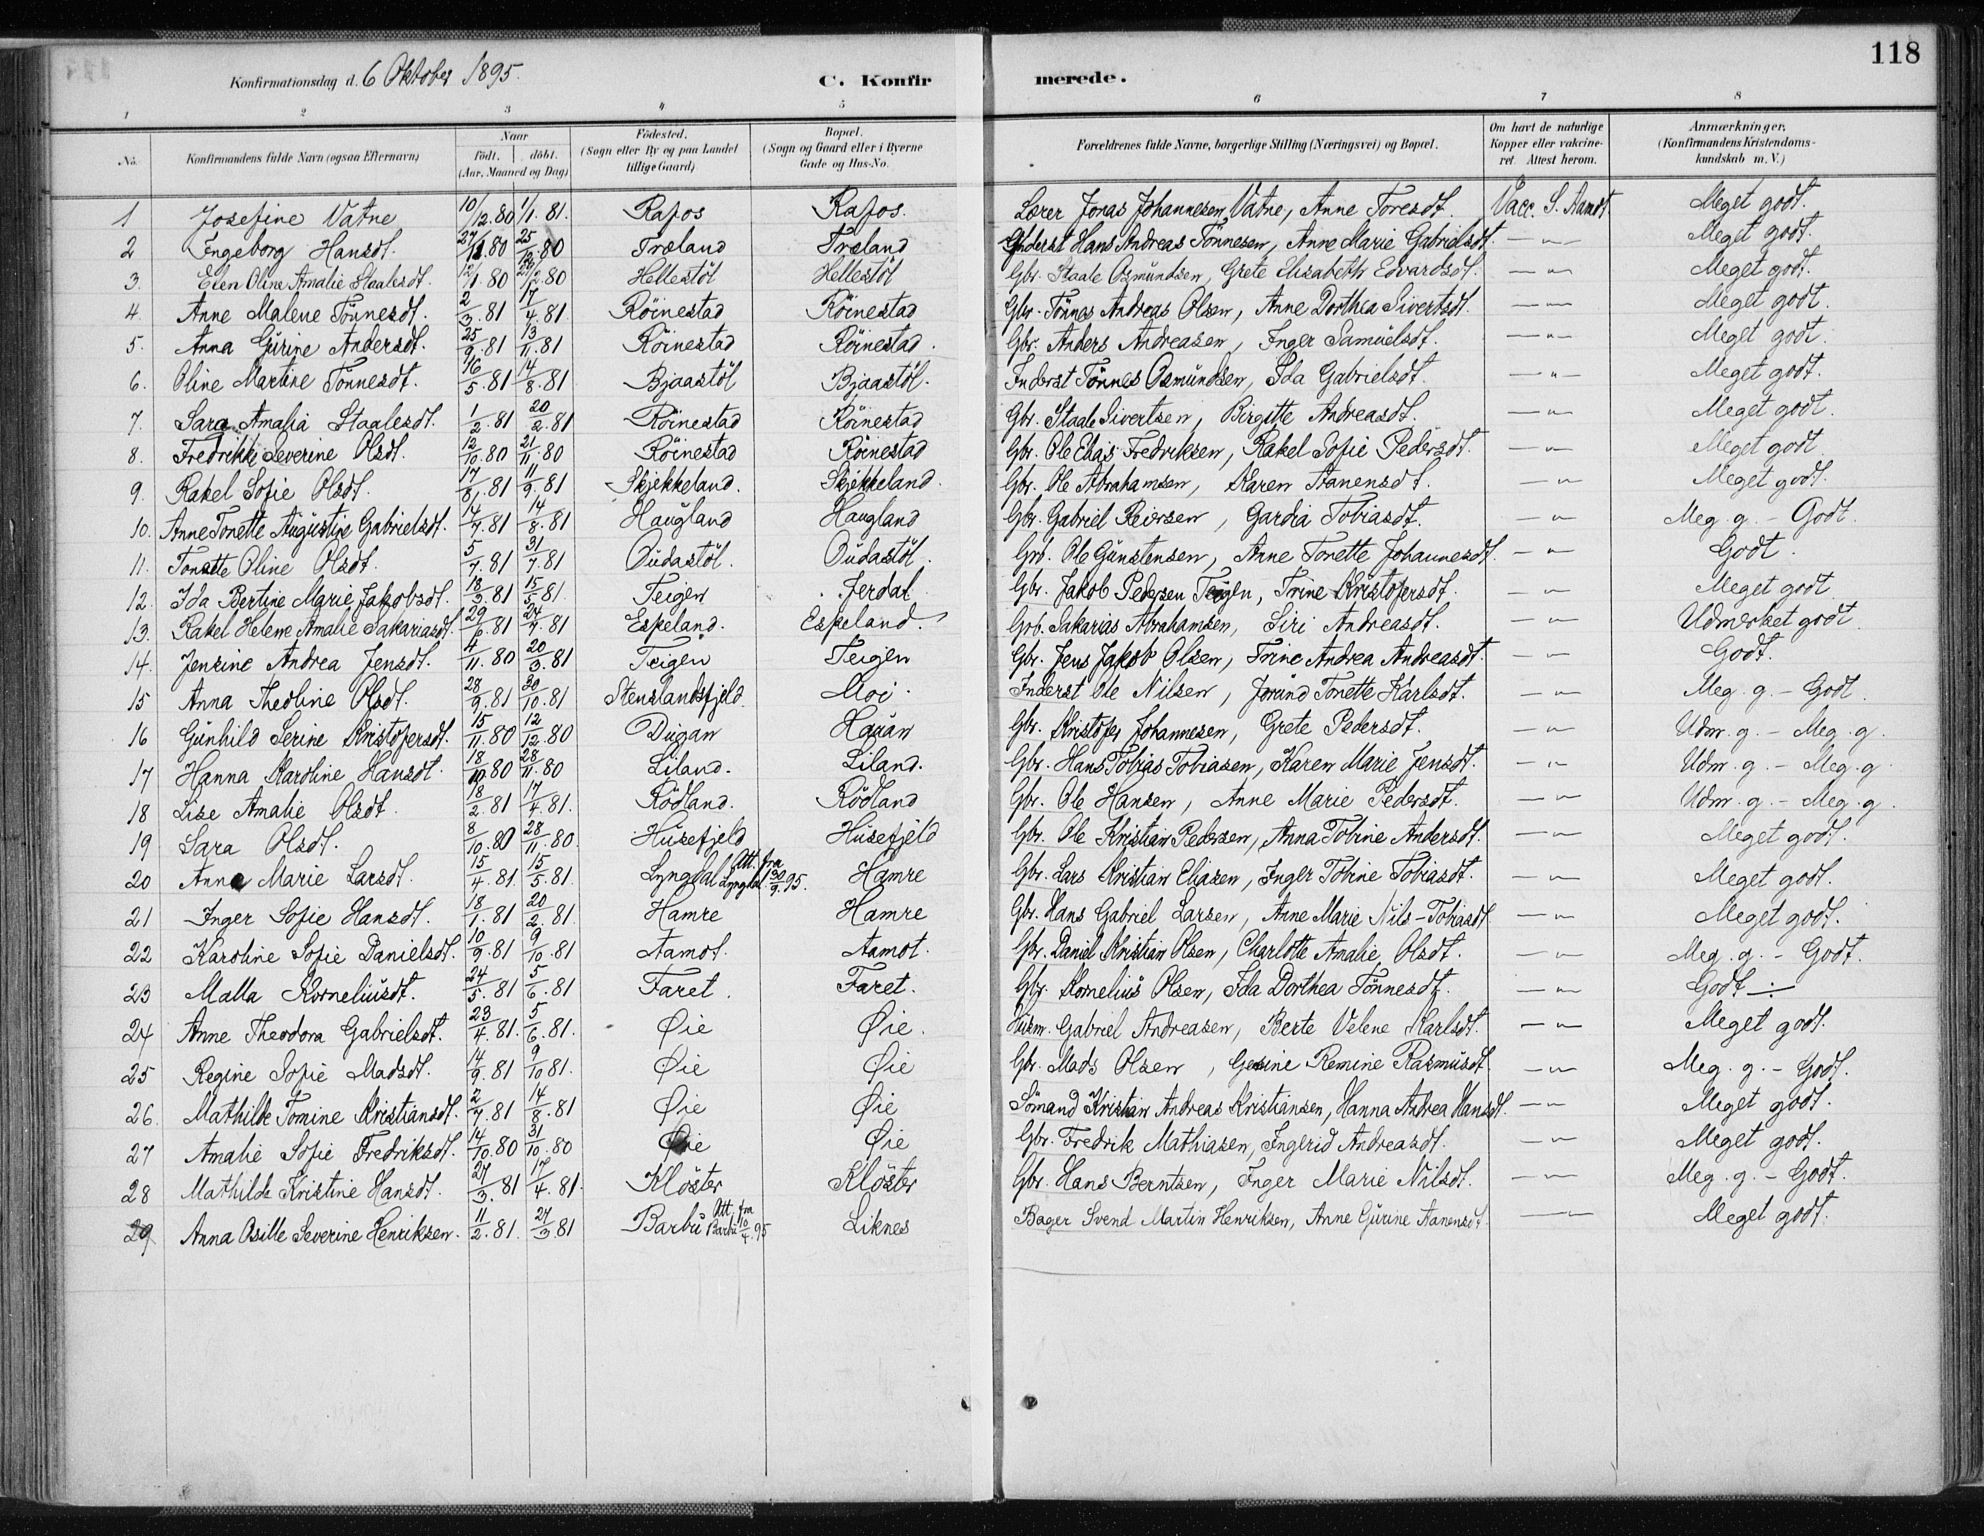 118
Konfirmationsdag d. 6 Oktober 1895.
C. Konfirmerede.
1 2 3 4 5 6 7 8
No. Konfirmandens fulde Navn (ogsaa Efternavn) Naar födt. döbt. (Aar, Maaned og Dag) Födested. (Sogn eller By og paa Landet tillige Gaard) Bopæl. (Sogn og Gaard eller i Byerne Gade og Hus-No. Forældrenes fulde Navne, borgerlige Stilling (Næringsvei) og Bopæl. Om havt de naturlige Kopper eller vaccineret. Attest herom. Anmærkninger. (Konfirmandens Kristendomskundskab m. V.)
1 Josefine Vatne 10/12.80 1/1.81. Rafos Rafos. Lærer Jonas Johannesen Vatne, Anne Toresdt. Vacc. S. Aamdt Meget godt.
2 Ingeborg Hansdt. .80 25 .80 Træland Træland Inderst Hans Andreas Tönnesen, Anne Marie Gabrielsdt. — " — Meget godt.
3. Elen Oline Amalie Staalesdt. 12/11.80 /12.80 Hellestöl Hellestöl Gbr. Staale Osmundsen, Grete Elisabeth Edvardsdt. — " — Meget godt.
4. Anne Malene Tönnesdt. 2/3.81 17/4.81 Röinestad Röinestad Gbr. Tönnes Andreas Olsen, Anne Dorthea Sivertsdt. — " — Meget godt.
5. Anna Gurine Andersdt. 25/9.81 13/11.81 Röinestad Röinestad. Gbr. Anders Andreasen, Inger Samuelsdt. — " — Meget godt.
6. Oline Martine Tönnesdt. 16/5.81 14/8.81 Bjaastöl Bjaastöl. Inderst Tönnes Osmundsen, Ida Gabrielsdt. — " — Meget godt.
7. Sara Amalia Staalesdt. 1/2.81 20/2.81 Röinestad Röinestad Gbr. Staale Sivertsen, Birgitte Andreasdt. — " — Meget godt.
8. Fredrikke Severine Olsdt. 12/10.80 21/11.80 Röinestad Röinestad Gbr. Ole Elias Fredriksen, Rakel Sofie Pedersdt. — " — Meget godt
9. Rakel Sofie Olsdt. 17/8.81 11/9.81 Skjekkeland. Skjekkeland. Gbr. Ole Abrahamsen, Karen Aanensdt. — " — Meget godt.
10. Anne Tonette Augustine Gabrielsdt. 14/7.81 14/8.81 Haugland Haugland Gbr. Gabriel Reiersen, Gardia Tobiasdt. — " — Meg. g. – Godt.
11. Tonette Oline Olsdt. 5/7.81 31/7.81 Oudastöl. Oudastöl. Grb. Ole Gunstensen, Anne Tonette Johannesdt. — " — Godt.
12. Ida Bertine Marie Jakobsdt. 18/3.81 15/5.81. Teigen Jerdal. Gbr. Jakob Pedersen Teigen, Trine Kristofersdt. — " — Meget godt
13. Rakel Helene Amalie Sakariasdt. 29/6.81 24/7.81 Espeland. Espeland. Gbr. Sakarias Abrahamsen, Siri Andreasdt. — " — Udmerket godt
14. Jensine Andrea Jensdt. 4/11.80 20/3.81 Teigen Teigen Gbr. Jens Jakob Olsen, Trine Andrea Andreasdt. — " — Godt.
15 Anna Theoline Olsdt. 28/9.81 30/10.81 Stenslandsfjeld. Moi. Inderst Ole Nilsen, Jorund Tonette Karlsdt. — " — Meg. g. – Godt
16 Gunhild Serine Kristofersdt. 15/11.80 12/12.80 Dugan Hauan Gbr. Kristofer Johannesen, Grete Pedersdt. — " — Udm. g. – Meg. g.
17 Hanna Karoline Hansdt. 18/10.80 28/11.80 Liland. Liland. Gbr. Hans Tobias Tobiasen, Karen Marie Jensdt. — " — Udm. g. – Meg. g
18 Lise Amalie Olsdt. 18/2.81 17/4.81. Rödland. Rödland Gbr. Ole Hansen, Anne Marie Pedersdt. — " — Udm. g. – Meg. g.
19 Sara Olsdt. 8/10.80 28/11.80. Husefjeld Husefjeld Gbr. Ole Kristian Pedersen, Anna Tobine Andersdt. — " — Meget godt.
20 Anne Marie Larsdt. 15/4.81. 15/5.81. Lyngdal Att. fra Lyngdal 30/9.95. Hamre Gbr. Lars Kristian Eliasen, Inger Tobine Tobiasdt. — " — Meget godt.
21 Inger Sofie Hansdt. 18/1.81 20/2.81 Hamre Hamre Gbr. Hans Gabriel Larsen, Anne Marie Nils-Tobiasdt — " — Meget godt.
22 Karoline Sofie Danielsdt. 10/9.81 9/10.81 Aamot. Aamot. Gbr. Daniel Kristian Olsen, Charlotte Amalie Olsdt. — " — Meg. g. – Godt.
23 Malla Korneliusdt. 24/5.81 5/6.81 Faret. Faret. Gbr. Kornelius Olsen, Ida Dorthea Tönnesdt. — " — Godt
24 Anne Theodora Gabrielsdt. 23/4.81. 5/6.81. Øie Øie. Husm. Gabriel Andreasen, Berte Velene Karlsdt. — " — Meget godt.
25 Regine Sofie Madsdt. 14/9.81 9/10 81. Øie Øie Gbr. Mads Olsen, Gesine Remine Rasmusdt. — " — Meg. g. – Godt.
26. Mathilde Tomine Kristiansdt. 2/7.81 14/8.81 Øie Øie Sömand Kristian Andreas Kristiansen, Hanna Andrea Hansdt. — " — Meget godt.
27 Amalie Sofie Fredriksdt. 14/10.80 31/10.80 Øie Øie Gbr. Fredrik Mathiasen, Ingerid Andreasdt. — " — Meget godt.
28 Mathilde Kristine Hansdt. 27/3.81 17/4.81. Klöster Klöster Gbr. Hans Berntsen, Inger Marie Nilsdt. — " — Meg. g. – Godt.
29 Anna Osille Severine Henriksen. 11/2.81. 27/3 81 Barbu Att. fra Barbu 10/4.95 Liknes Bager Svend Martin Henriksen, Anne Gurine Aanensdt. — " — Meget godt.